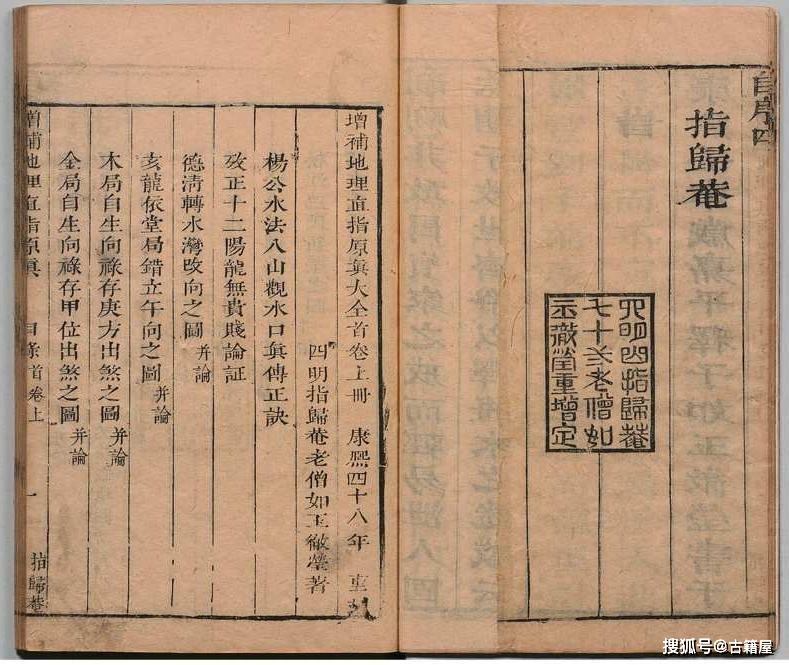 自序四
指歸菴
四明山指歸菴
七十叟老僧如
玉徹瑩重增定
增補地理直指原眞大全首卷上冊 康熙四十八年 重
四明指歸菴老僧如玉徹瑩著
楊公水法八山觀水口眞傳正訣
攷正十二陽龍無貴賤論証
德淸轉水灣改向之圖 并論
亥龍依堂局錯立午向之圖 并論
木局自生向祿存庚方出煞之圖 并論
金局自生向祿存甲位出煞之圖 并論
增補地理直指原眞 目条首卷上 一 指歸菴
搜狐号@古籍屋